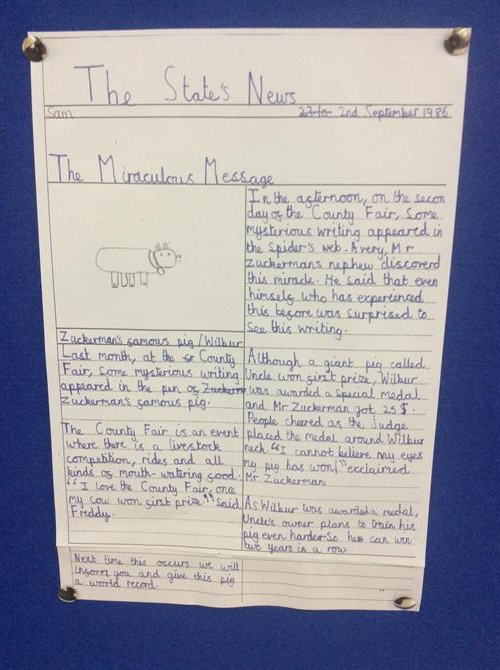 The State's News
Sam
2nd September 1986
The Miraculous Message
Zuckerman's famous pig/Wilbur
Last month, at the County
Fair, some mysterious writing
appeared in the pen of
Zuckerman's famous pig.
The County Fair is an event
where there is a livestock
competition, rides and all
kinds of mouth-watering food.
"I love the County Fair, once
my cow won first prize" said
Freddy.
Next time this occurs we will
inform you and give this pig
a world record.
In the afternoon, on the secon
day of the County Fair, some
mysterious writing appeared in
the spider's web. Avery, Mr
Zuckermans nephew discoverd
this miracle. He said that even
himself who has experienced
this before was surprised to
see this writing.
Although a giant pig called
Uncle won first prize, Wilbur
was awarded a special medal
and Mr Zuckerman got 25 $.
People cheered as the Judge
placed the medal around Wilbur
neck "I cannot believe my eyes
my pig has won!" exclaimed
Mr Zuckerman
As Wilbur was awarded a medal,
Uncle's owner plans to train his
pig even harder So he can win
two years in a row